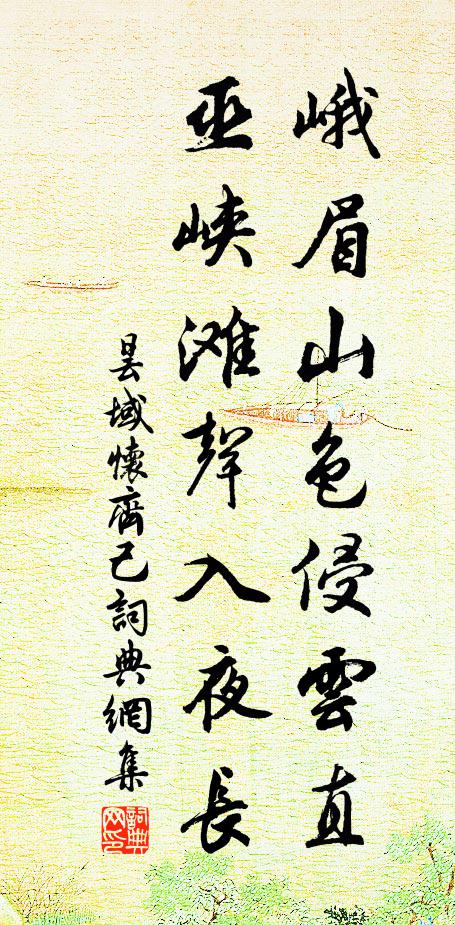 峨眉山色侵雲直
巫峽滩聲入夜長
昙域懷齊己詞典網集
詞典网印